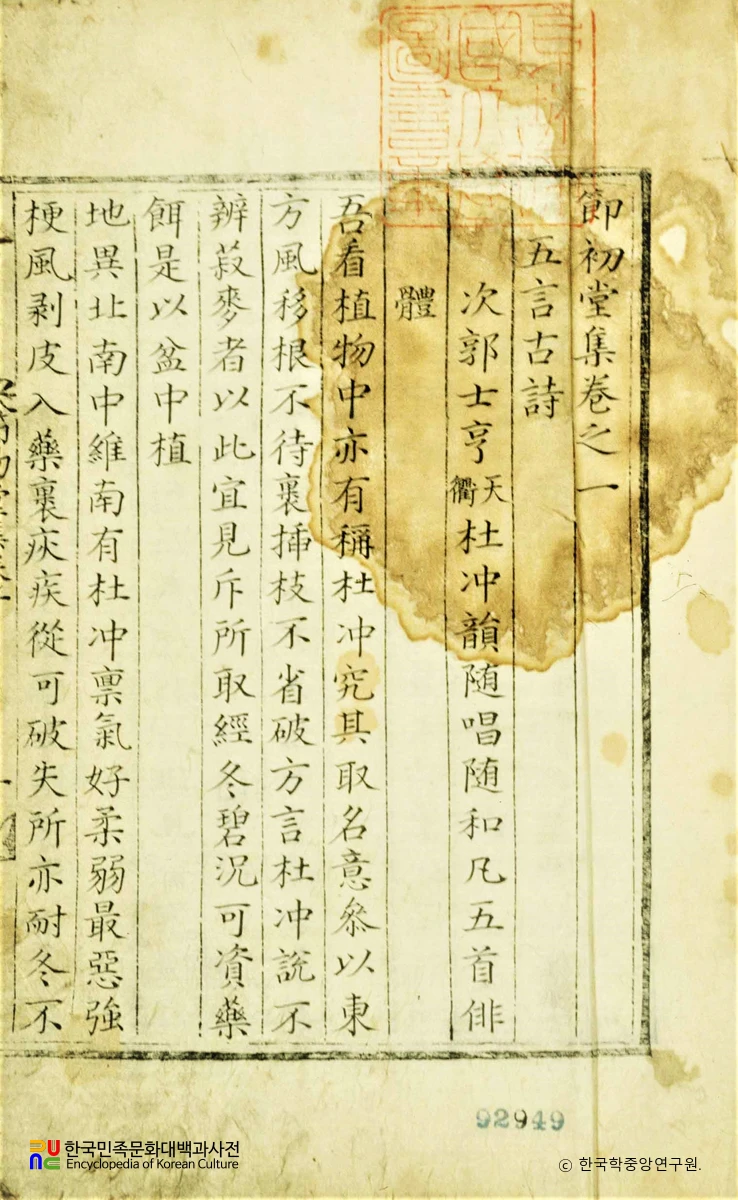 節初堂集卷之一
五言古詩
次郭士亨天衢杜冲韻随唱随和凡五首俳
體
吾看植物中亦有稱杜冲究其取名意叅以東
方風移根不待裹揷枝不省破方言杜冲說不
辨菽麥者以此宜見斥所取經冬碧况可資藥
餌是以盆中植
地異北南中維南有杜冲禀氣好柔弱最惡強
梗風剥皮入藥裹疢疾從可破失所亦耐冬不
92949
한국민족문화대백과사전
Encyclopedia of Korean Culture
© 한국학중앙연구원.